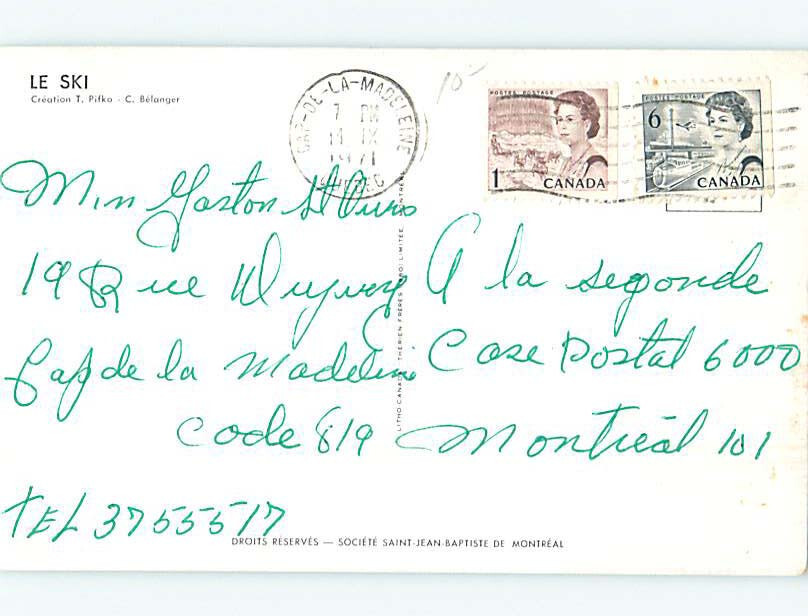 LE SKI
Création T. Pifko - C. Bélanger
CAP-DE-LA-MADELEINE
7 PM
14 IX
1971
QUEBEC
10-
POSTES POSTAGE
1 CANADA
POSTES POSTAGE
6
CANADA
Min Gaston St
19 Rue
Cap de la Madeleine
code 819
TEL 3755517
A la segonde
Case Postal 6000
Montréal 101
LITHO CANADA THERIEN FRÈRES LIMITÉE, MONTRÉAL
DROITS RÉSERVÉS — SOCIÉTÉ SAINT-JEAN-BAPTISTE DE MONTRÉAL